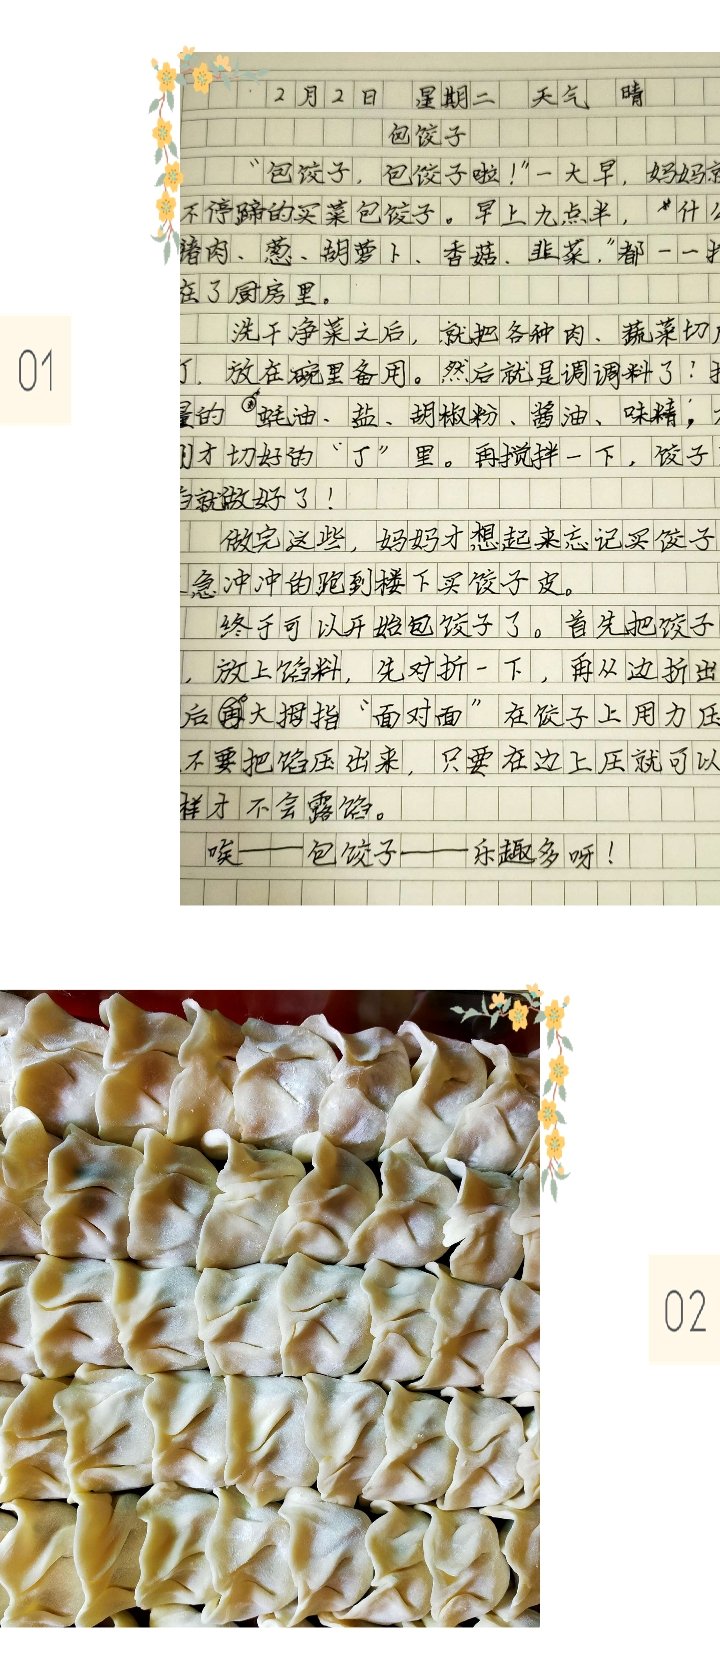 2月2日 星期二 天气 晴
包饺子
“包饺子,包饺子啦!”一大早,妈妈
不停蹄的买菜包饺子。早上九点半,“什
猪肉、葱、胡萝卜、香菇、韭菜,”都一一
在了厨房里。
01
洗干净菜之后,就把各种肉、蔬菜切
丁,放在碗里备用。然后就是调调料了!
量的 蚝油、盐、胡椒粉、酱油、味精,
刚才切好的“丁”里。再搅拌一下,饺子
就做好了!
做完这些,妈妈才想起来忘记买饺子
急冲冲的跑到楼下买饺子皮。
终于可以开始包饺子了。首先把饺子
,放上馅料,先对折一下,再从边折出
后 大拇指“面对面”在饺子上用力压
不要把馅压出来,只要在边上压就可以
样才不会露馅。
唉——包饺子——乐趣多呀!
02